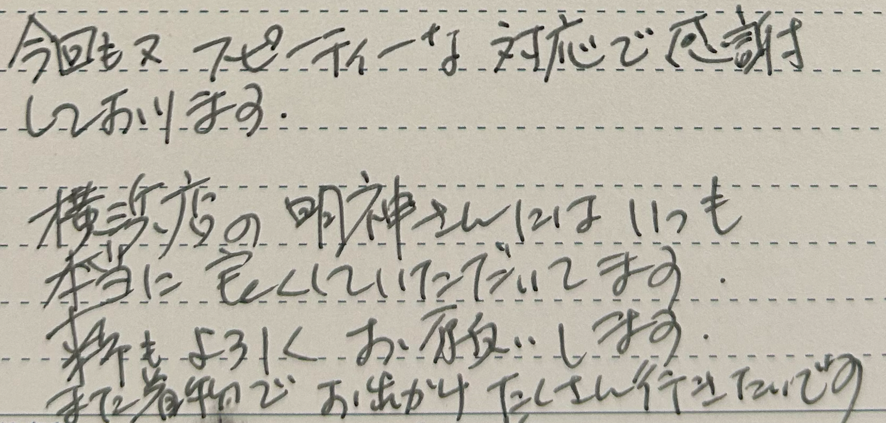 今回も又 スピーディーな 対応で感謝
しております.
横浜店の明神さんには いつも
本当に 良くしていただいてます.
来年も よろしく お願いします.
また着物で お出かけ たくさん行きたいです